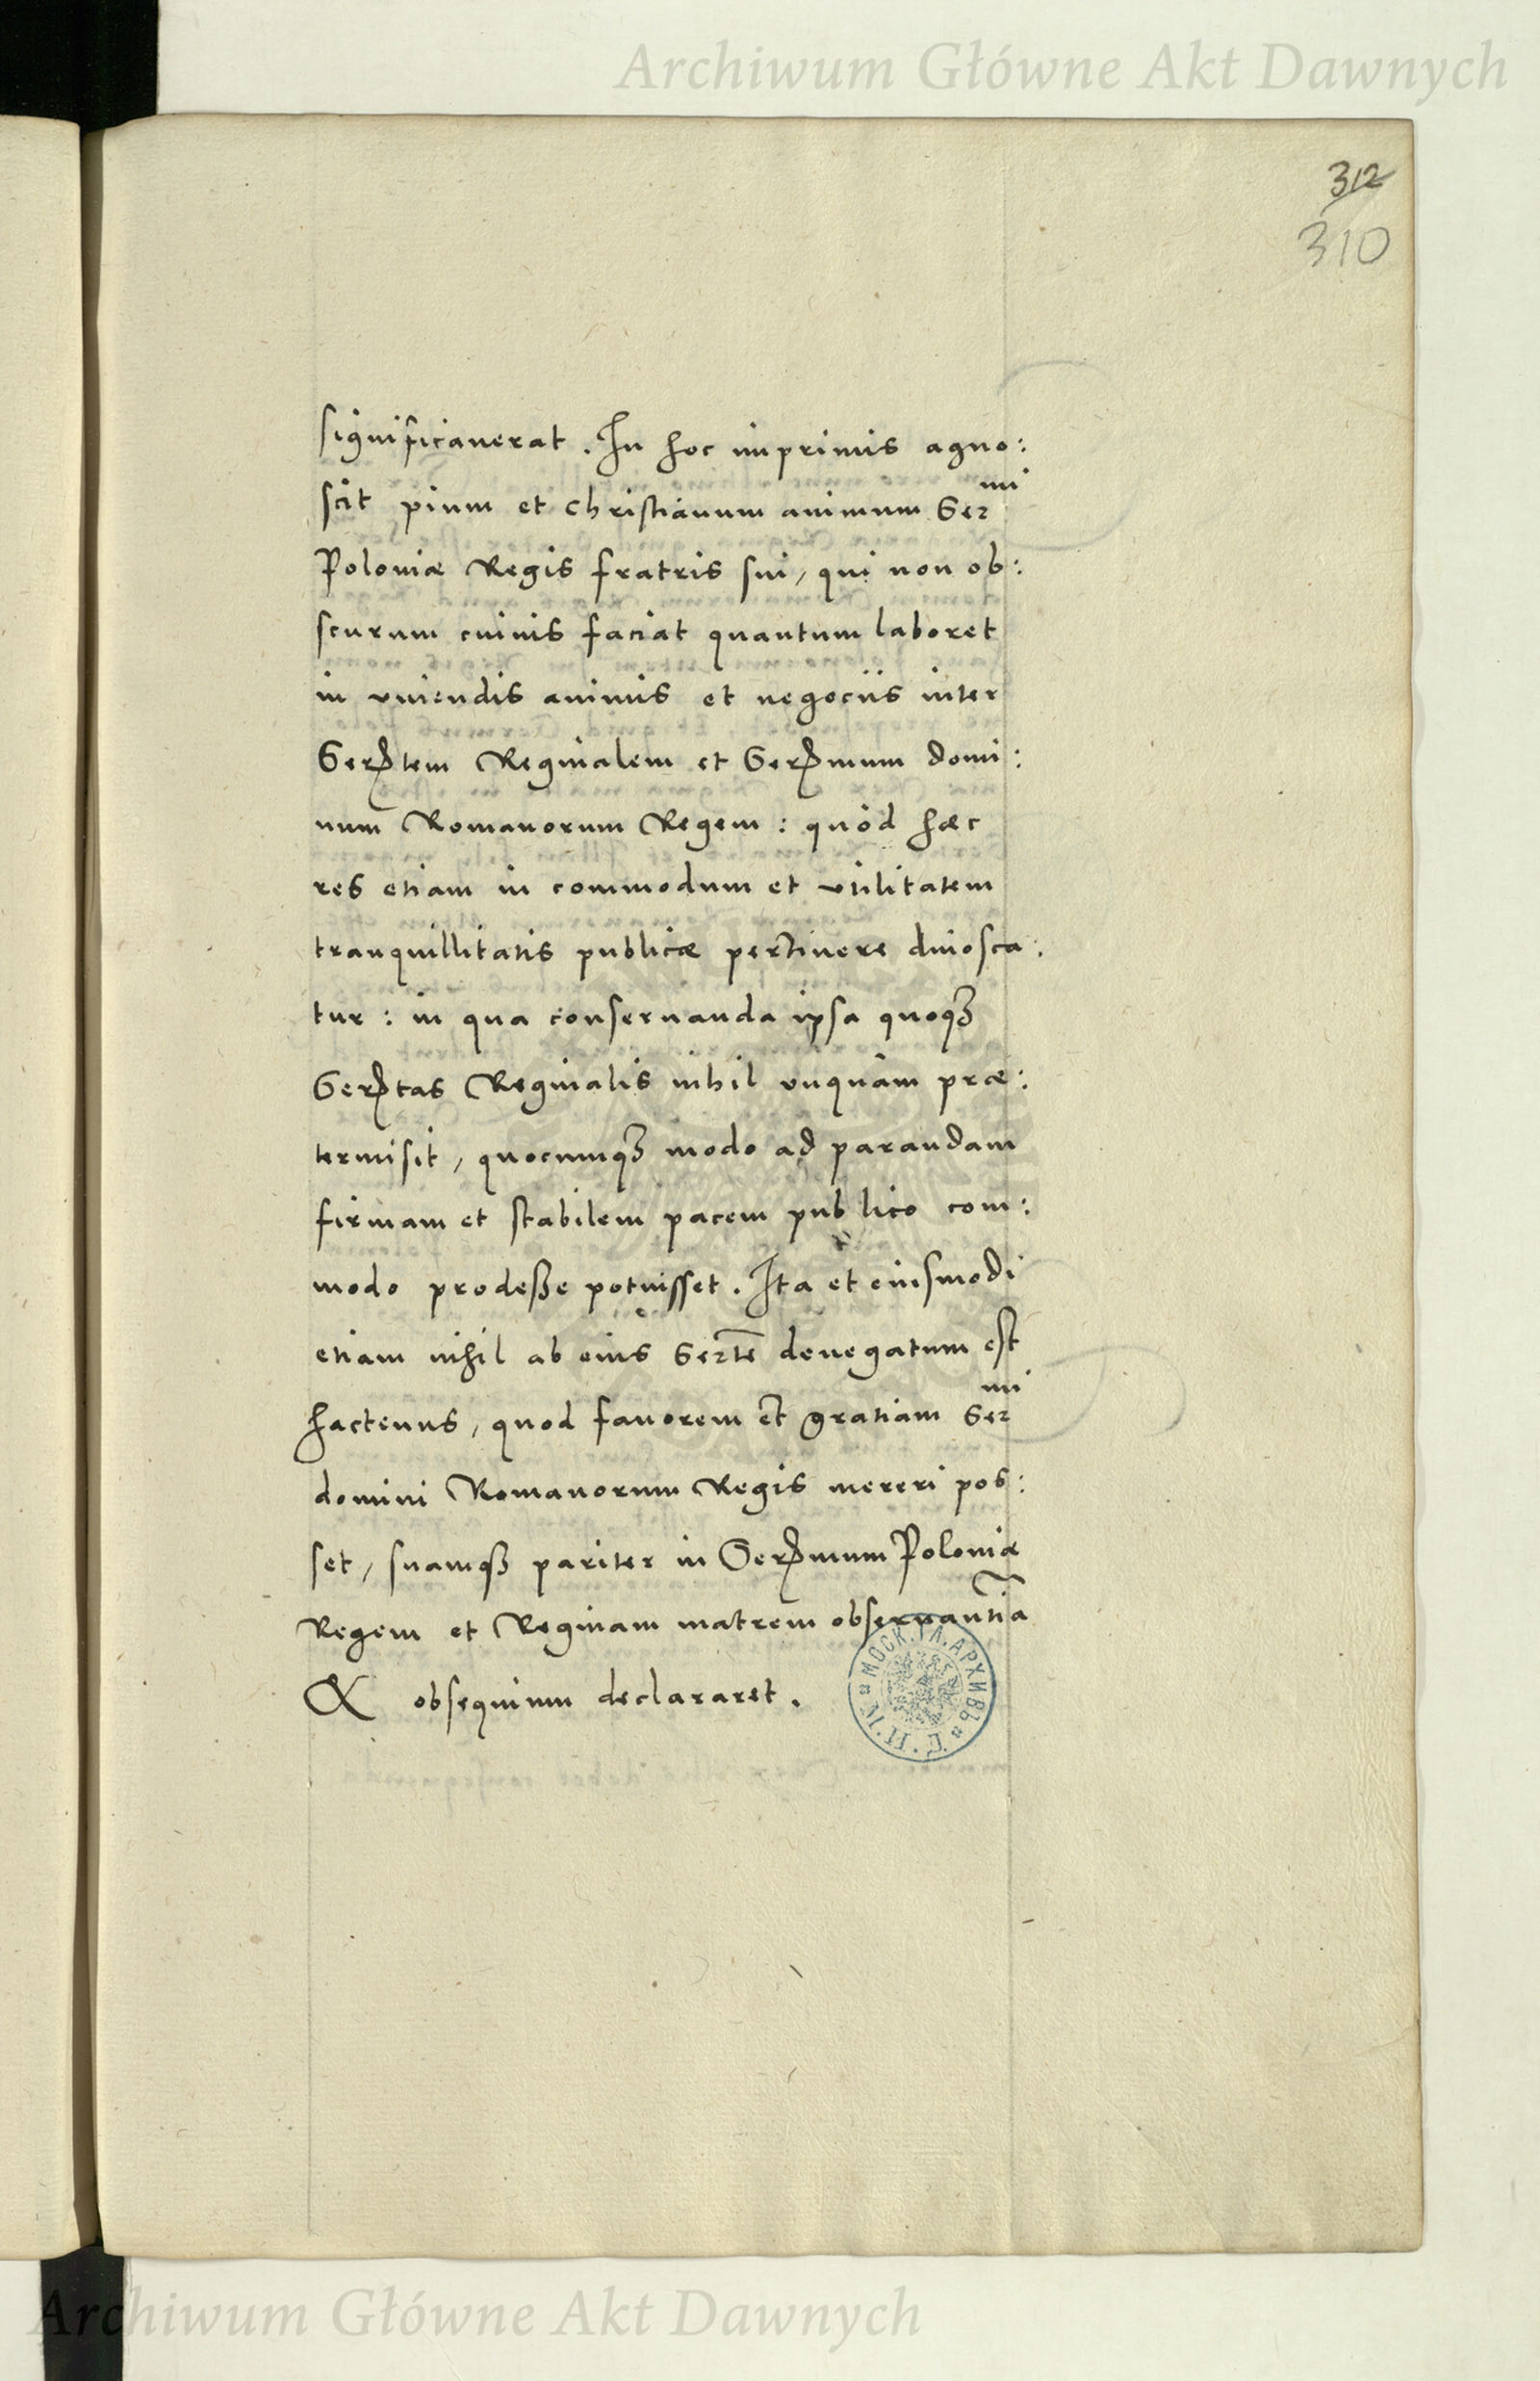 Archiwum Główne Akt Dawnych
312
310
significauerat. In hoc imprimis agno:
scit pium et christianum animum Sermi
Poloniæ Regis fratris sui, qui non ob:
scurum cuiuis faciat quantum laboret
in vniendis animis et negociis inter
Sertem Reginalem et Sermum domi:
num Romanorum Regem: quòd hæc
res etiam in commodum et vtilitatem
tranquillitatis publicæ pertinere dinosca:
tur: in qua conseruanda ipsa quoq3
Sertas Reginalis nihil vnquàm præ:
termisit, quocumq3 modo ad parandam
firmam et stabilem pacem publico com:
modo prodesse potuisset. Ita et eiusmodi
etiam nihil ab eius Serte denegatum est
hactenus, quod fauorem et gratiam Sermi
domini Romanorum Regis mereri pos:
set, suamq3 pariter in Sermum Poloniæ
Regem et Reginam matrem obseruantiā
& obsequium declararet.
МОСК. ГЛ. АРХИВЪ
Archiwum Główne Akt Dawnych